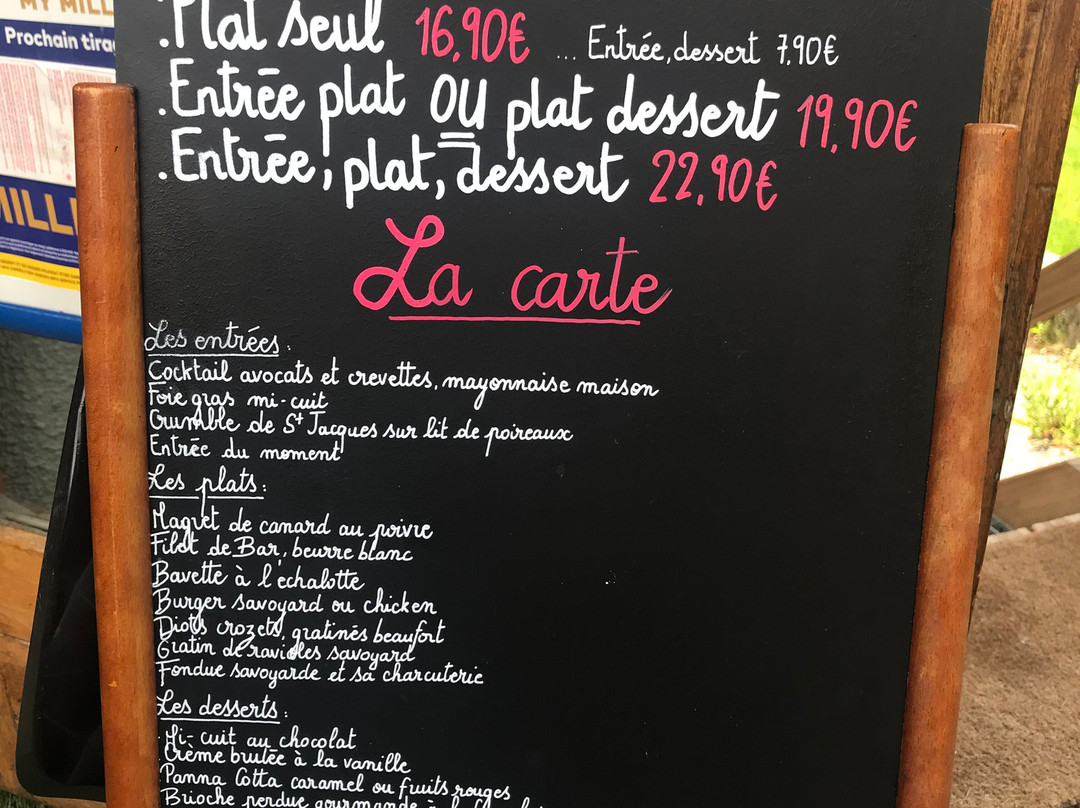 MY MILL
Prochain tira
MILL
.Plat seul 16,90€ ... Entrée, dessert 7,90€
.Entrée plat OU plat dessert 19,90€
.Entrée, plat, dessert 22,90€
La carte
Les entrées :
Cocktail avocats et crevettes, mayonnaise maison
Foie gras mi-cuit
Crumble de St Jacques sur lit de poireaux
Entrée du moment
Les plats :
Magret de canard au poivre
Filet de Bar, beurre blanc
Bavette à l'échalotte
Burger savoyard ou chicken
Diots crozets, gratinés beaufort
Gratin de ravioles savoyard
Fondue savoyarde et sa charcuterie
Les desserts :
Mi-cuit au chocolat
Crème brulée à la vanille
Panna Cotta caramel ou fruits rouges
Brioche perdue gourmande